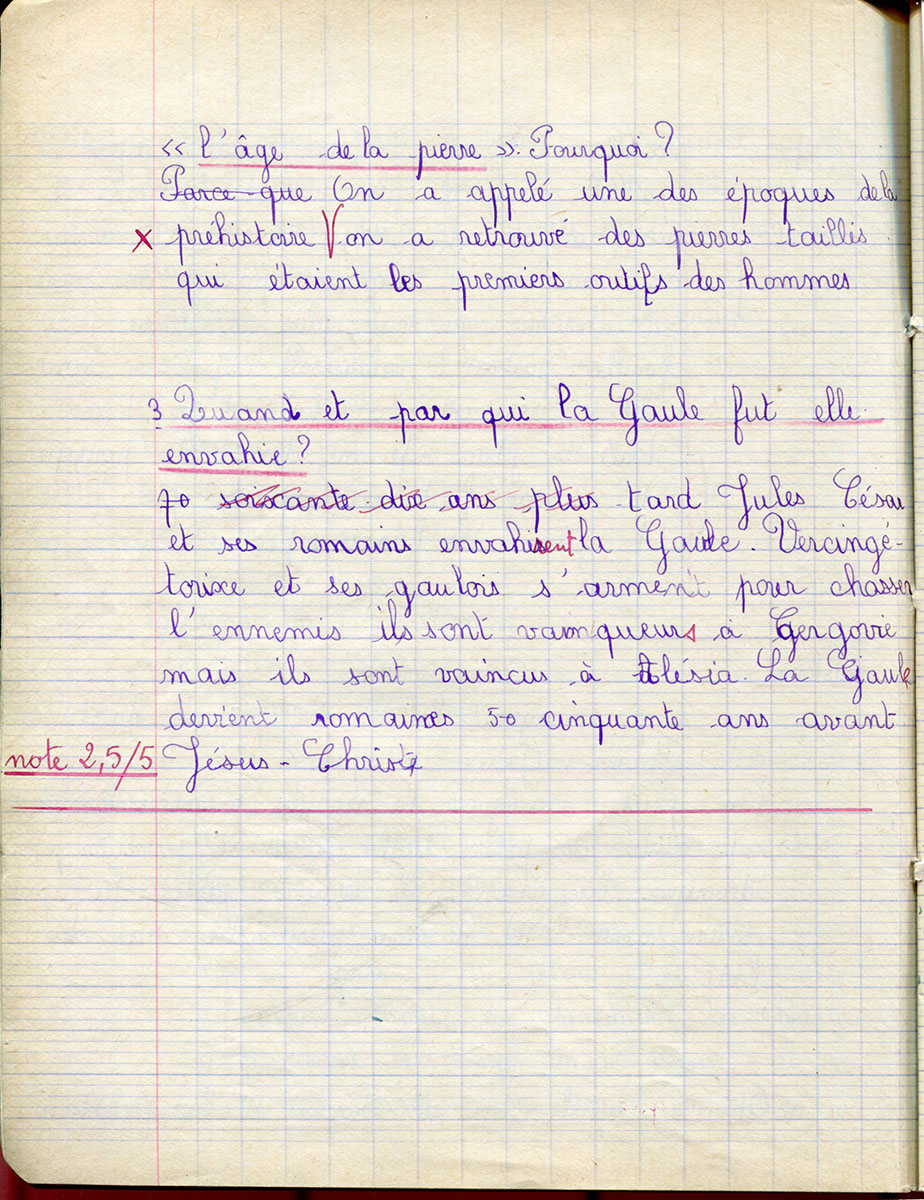 « l'âge de la pierre ». Pourquoi ?
Parce que On a appelé une des époques de la
x préhistoire √ on a retrouvé des pierres taillés
qui étaient les premiers outils des hommes
3 Quand et par qui la Gaule fut elle
envahie ?
70 soixante dix ans plus tard Jules César
et ses romains envahissent la Gaule. Vercingé-
torixe et ses gaulois s'arment pour chasser
l'ennemis ils sont vainqueurs à Gergovie
mais ils sont vaincus à Alésia. La Gaule
devient romaines 50 cinquante ans avant
note 2,5/5 Jésus-Christ